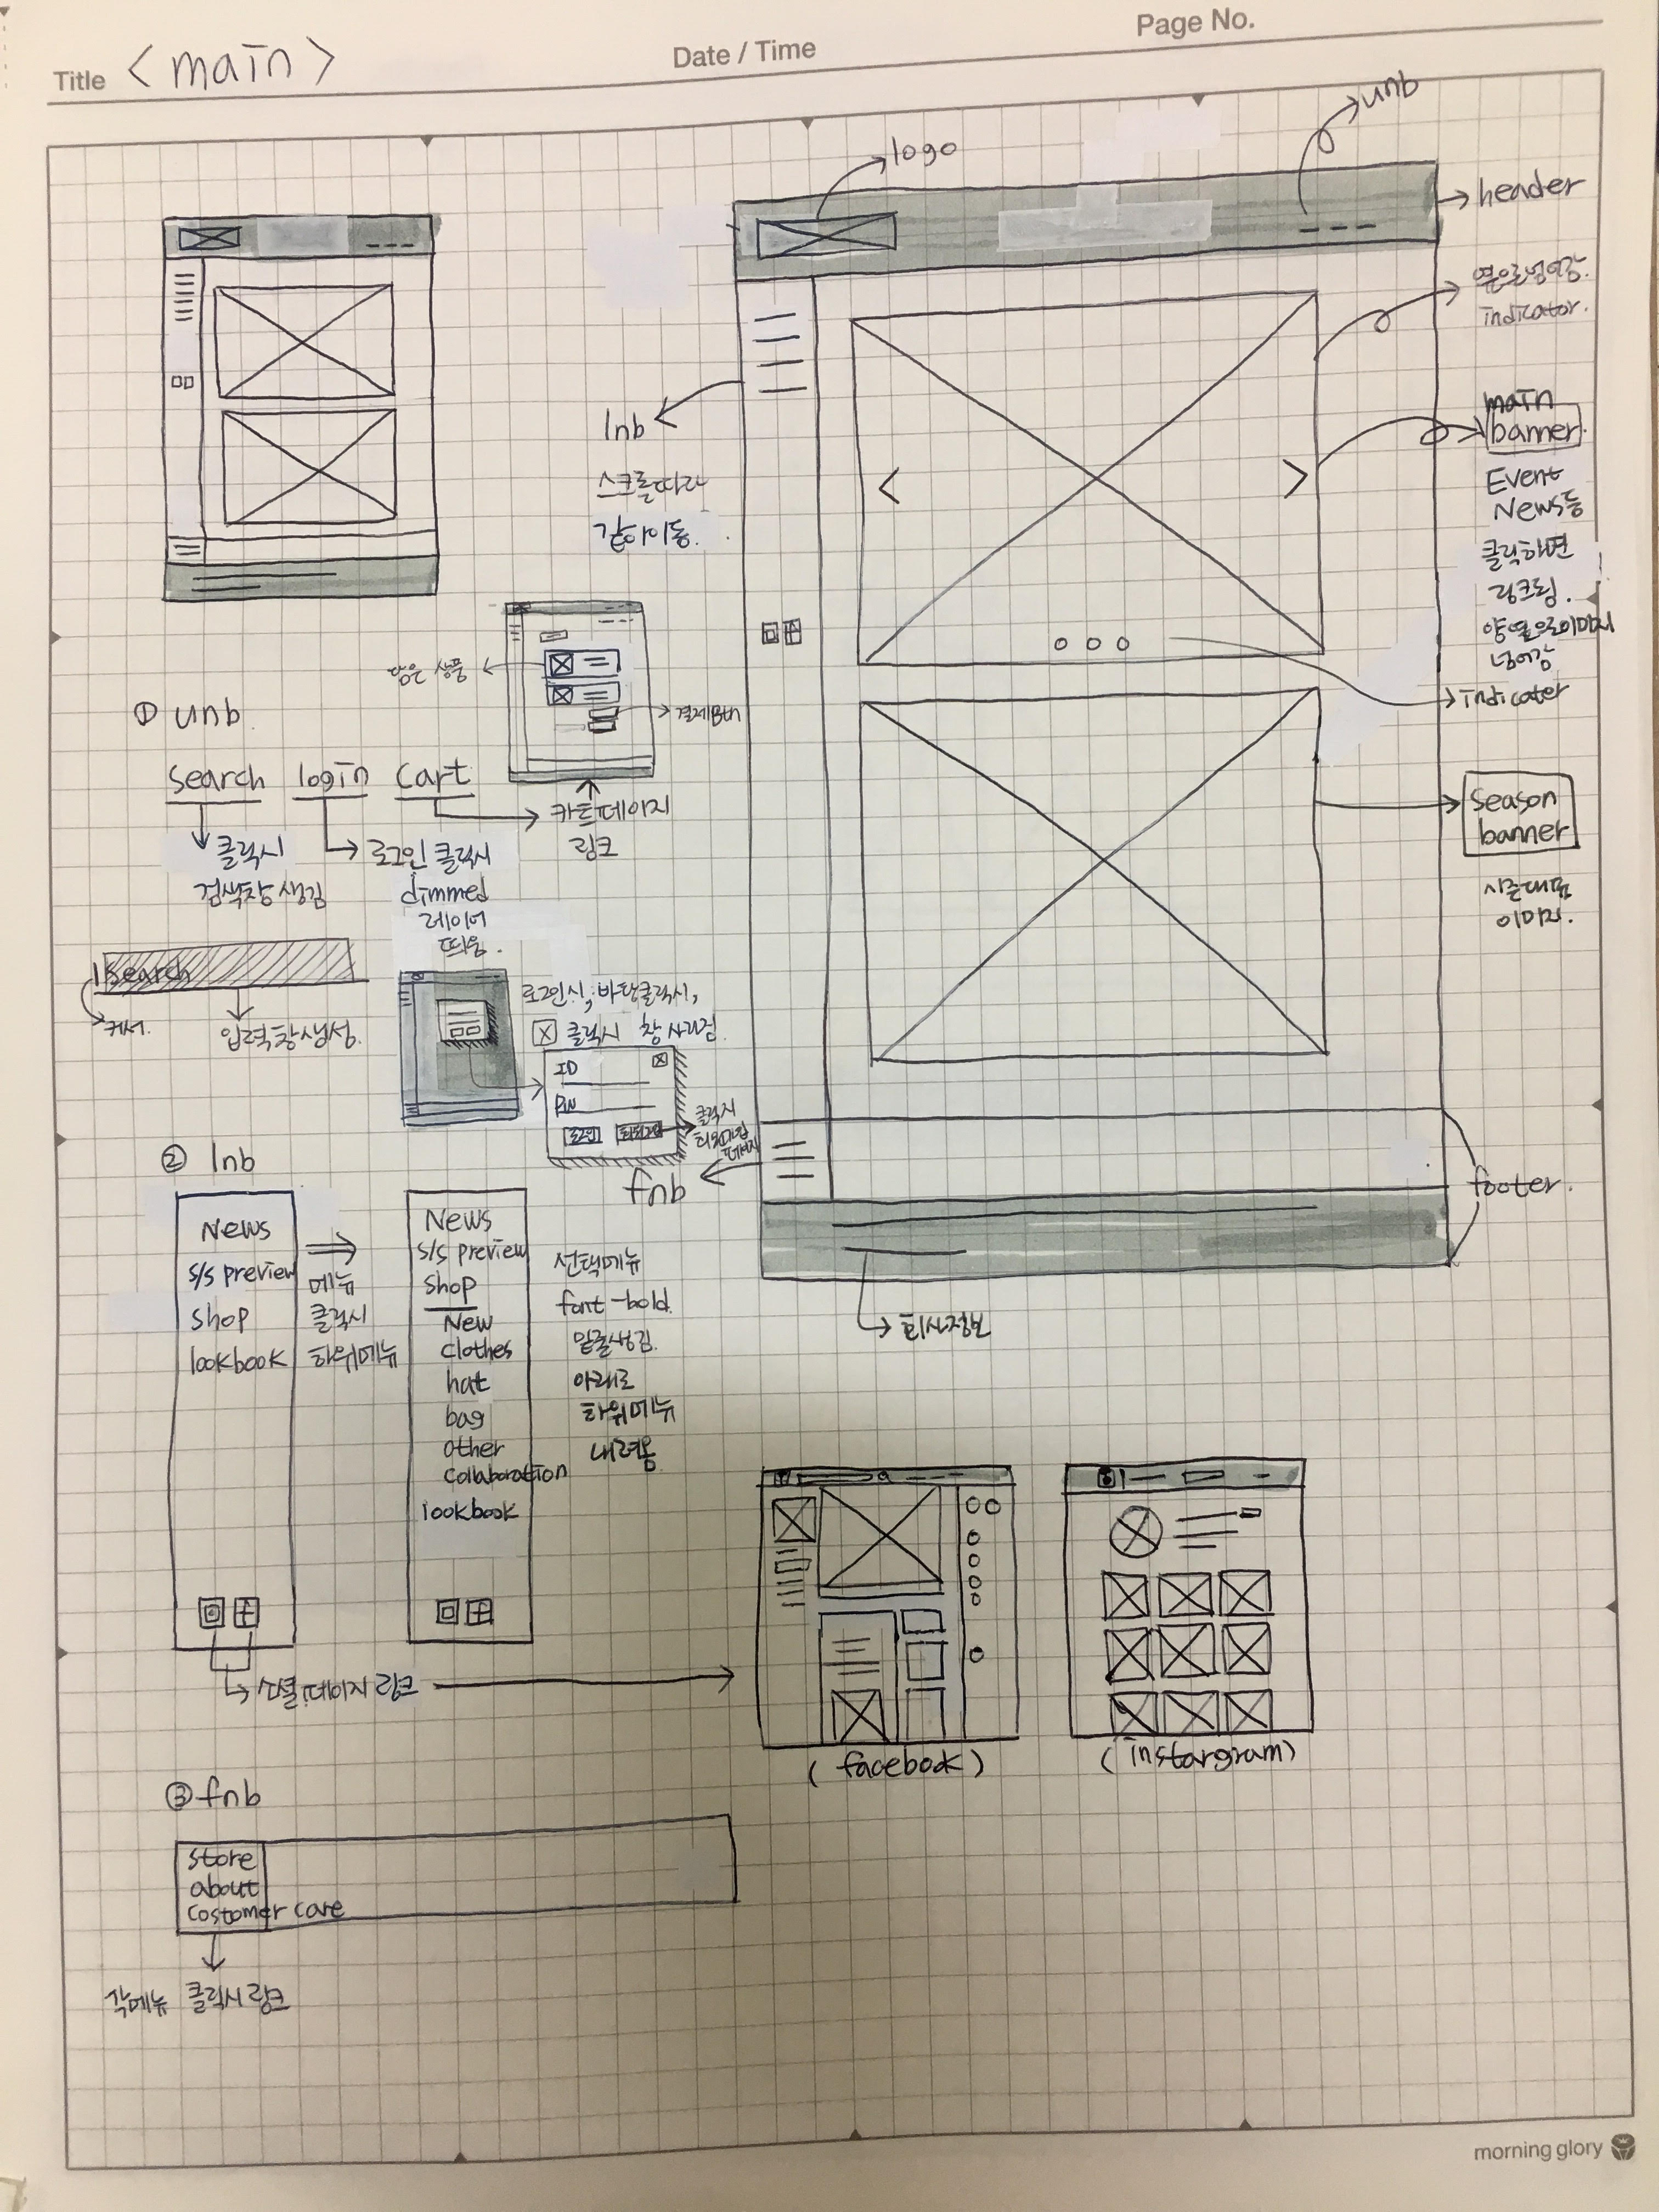 Title <main>
Date / Time
Page No.
unb
logo
header
옆으로 넘어감.
indicator.
main
banner.
Event
News등
클릭하면
링크됨.
양옆으로 이미지
넘어감
indicater
season
banner
시즌대표
이미지.
footer.
lnb
스크롤따라
같이이동.
fnb
회사정보
담은 상품
결제Btn
카트페이지
링크
① unb
search login cart
클릭시
검색창 생김
로그인 클릭시
dimmed
레이어
띄움.
Search
커서.
입력창생성.
로그인시, 바탕클릭시,
X 클릭시 창 사라짐.
ID
PW
로그인 회원가입
클릭시
회원가입
페이지
② lnb
News
s/s preview
shop
lookbook
메뉴
클릭시
하위메뉴
News
s/s preview
shop
New
clothes
hat
bag
other
collaboration
lookbook
선택메뉴
font-bold.
밑줄생김.
아래로
하위메뉴
내려옴
소셜페이지 링크
(facebook)
(instargram)
③ fnb
store
about
costomer care
각메뉴 클릭시 링크
morning glory